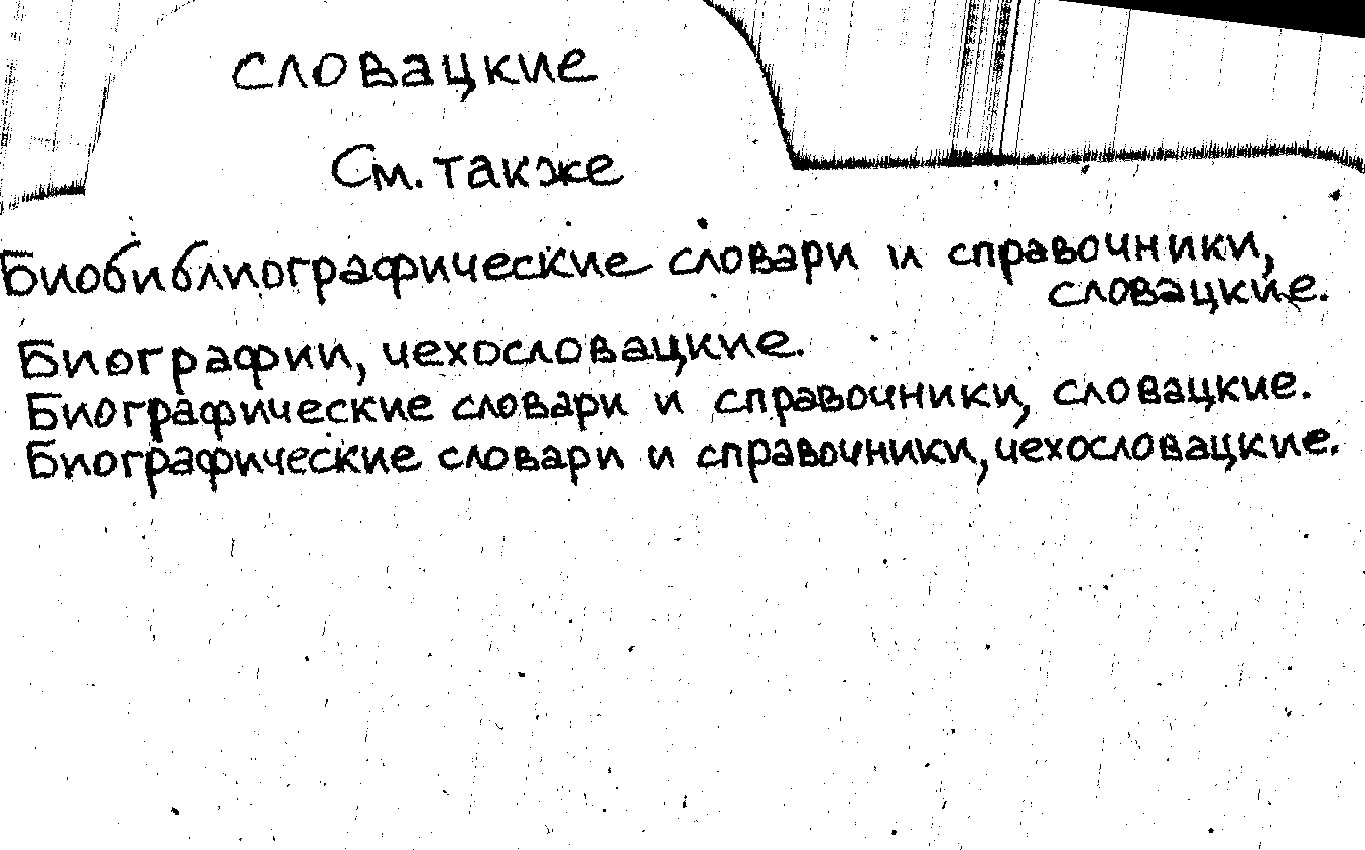 словацкие
См. также
Биобиблиографические словари и справочники,
словацкие.
Биографии, чехословацкие.
Биографические словари и справочники, словацкие.
Биографические словари и справочники, чехословацкие.